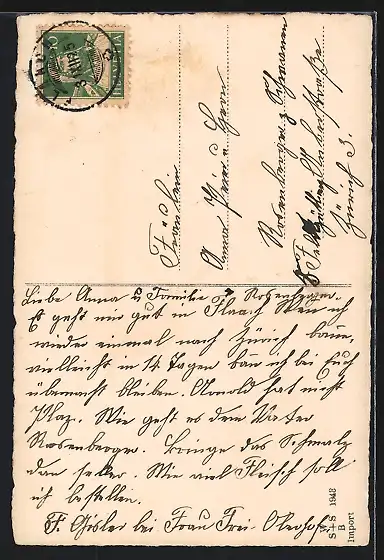 Fräulein
Anna
Rosenberger z. Schonnen
Zürich 3.
Liebe Anna u Familie Rosenberger.
Es geht mir gut in Flaach Wen ich
wieder einmal nach Zürich käm,
vielleicht in 14 Tagen kän ich bei Euch
übernacht bleiben. Arnold hat nicht
Plaz. Wie geht es dem Vater
Rosenberger. Bringe das Schmalz
dan selber. Wie viel Fleisch soll
ich bestellen.
F. Gisler bei Frau Frei - Oberhof
W
S+S 1942
B
Import